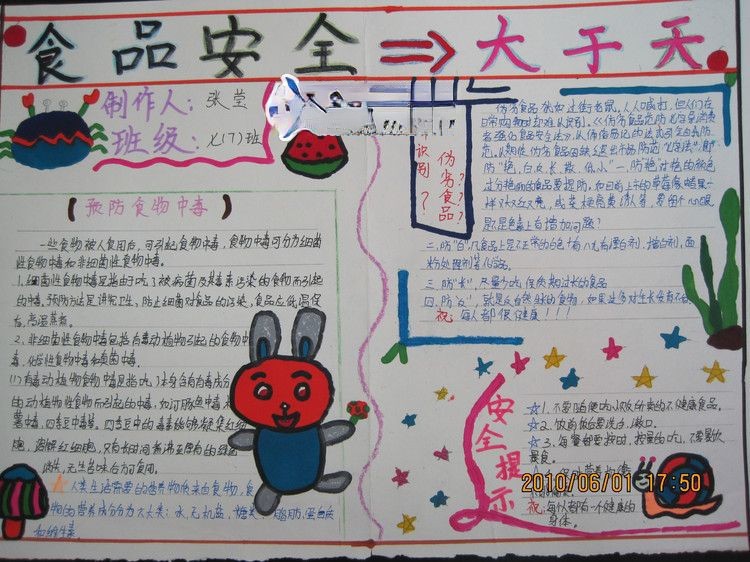 食品安全 大于天
制作人: 张莹
班级: 七(7)班
【预防食物中毒】
一些食物被人食用后,可引起食物中毒,食物中毒可分为细菌
性食物中毒和非细菌性食物中毒。
1.细菌性食物中毒是指由于吃了被病菌及其毒素污染的食物而引起
的中毒。预防方法是讲究卫生,防止细菌对食品的污染,食品应低温保
存,高温蒸煮。
2、非细菌性食物中毒包括有毒动植物引起的食物中
毒、化学性食物中毒和真菌中毒。
(1)有毒动植物食物中毒是指吃了本身含有毒成分
的动植物性食物而引起的中毒,如河豚鱼中毒、
薯中毒、四季豆中毒等。四季豆中的毒素能够凝集红细
胞,溶解红细胞,
人类生活需要的营养物质来自食物,食
物的营养成分分为六大类:水、无机盐、糖类、脂肪、蛋白质
和维生素
识别
伪劣食品?
?
?
?
伪劣食品犹如过街老鼠,人人喊打,但人们在
日常购物时却难以识别。
范。
防"艳、白、长、散、低、小"一、防"艳"对艳的颜色
过分艳丽的食品要提防,如目前上市的草莓像蜡果一
样又大又红又亮,咸菜梗亮黄诱人等,要留个心眼
是不是色素上有增加问题?
二、防"白"凡食品上呈不正常的白色十有八九有漂白剂、增白剂、面
粉处理剂等化学品。
三、防"长",尽量少吃保质期过长的食品
祝:每人都很健康!!!
安全提示
☆1、不要随便吃小贩所卖的不健康食品。
☆2、饭前饭后要洗手、漱口。
☆3、每餐都要按时、按量的吃,不要暴饮
暴食。
祝:每人都有一个健康的
身体。
2010/06/01 17:50